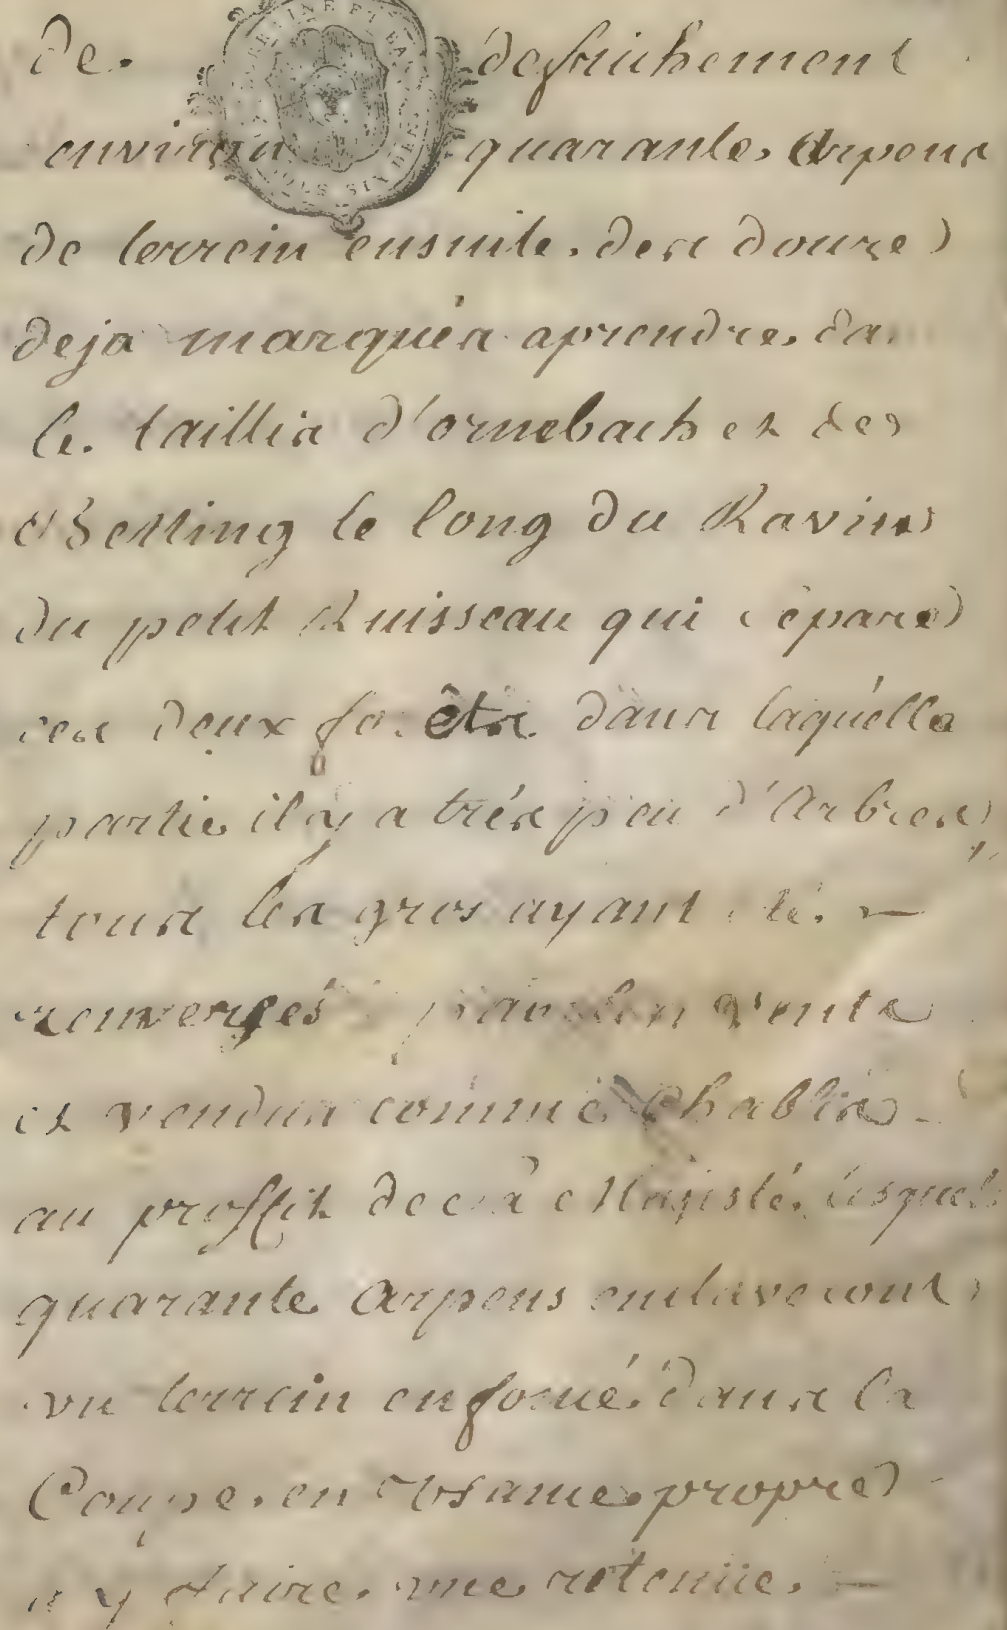 de defrichement
environ quarante Arpens
de terrein ensuite des douze
deja marqués aprendre da
le taillis d'ornebach et des
le long du Ravin
du petit Ruisseau qui sépare
ces deux forêts dans laquelle
partie il y a trés peu d'Arbres,
tous les gros ayant été
renversés par les vents
et vendus comme Chablis
au proffit de sa Majesté, lesquels
quarante Arpens enclaveront
un terrein enfoncé dans la
Coupe en usance propre
a y faire une retenüe.